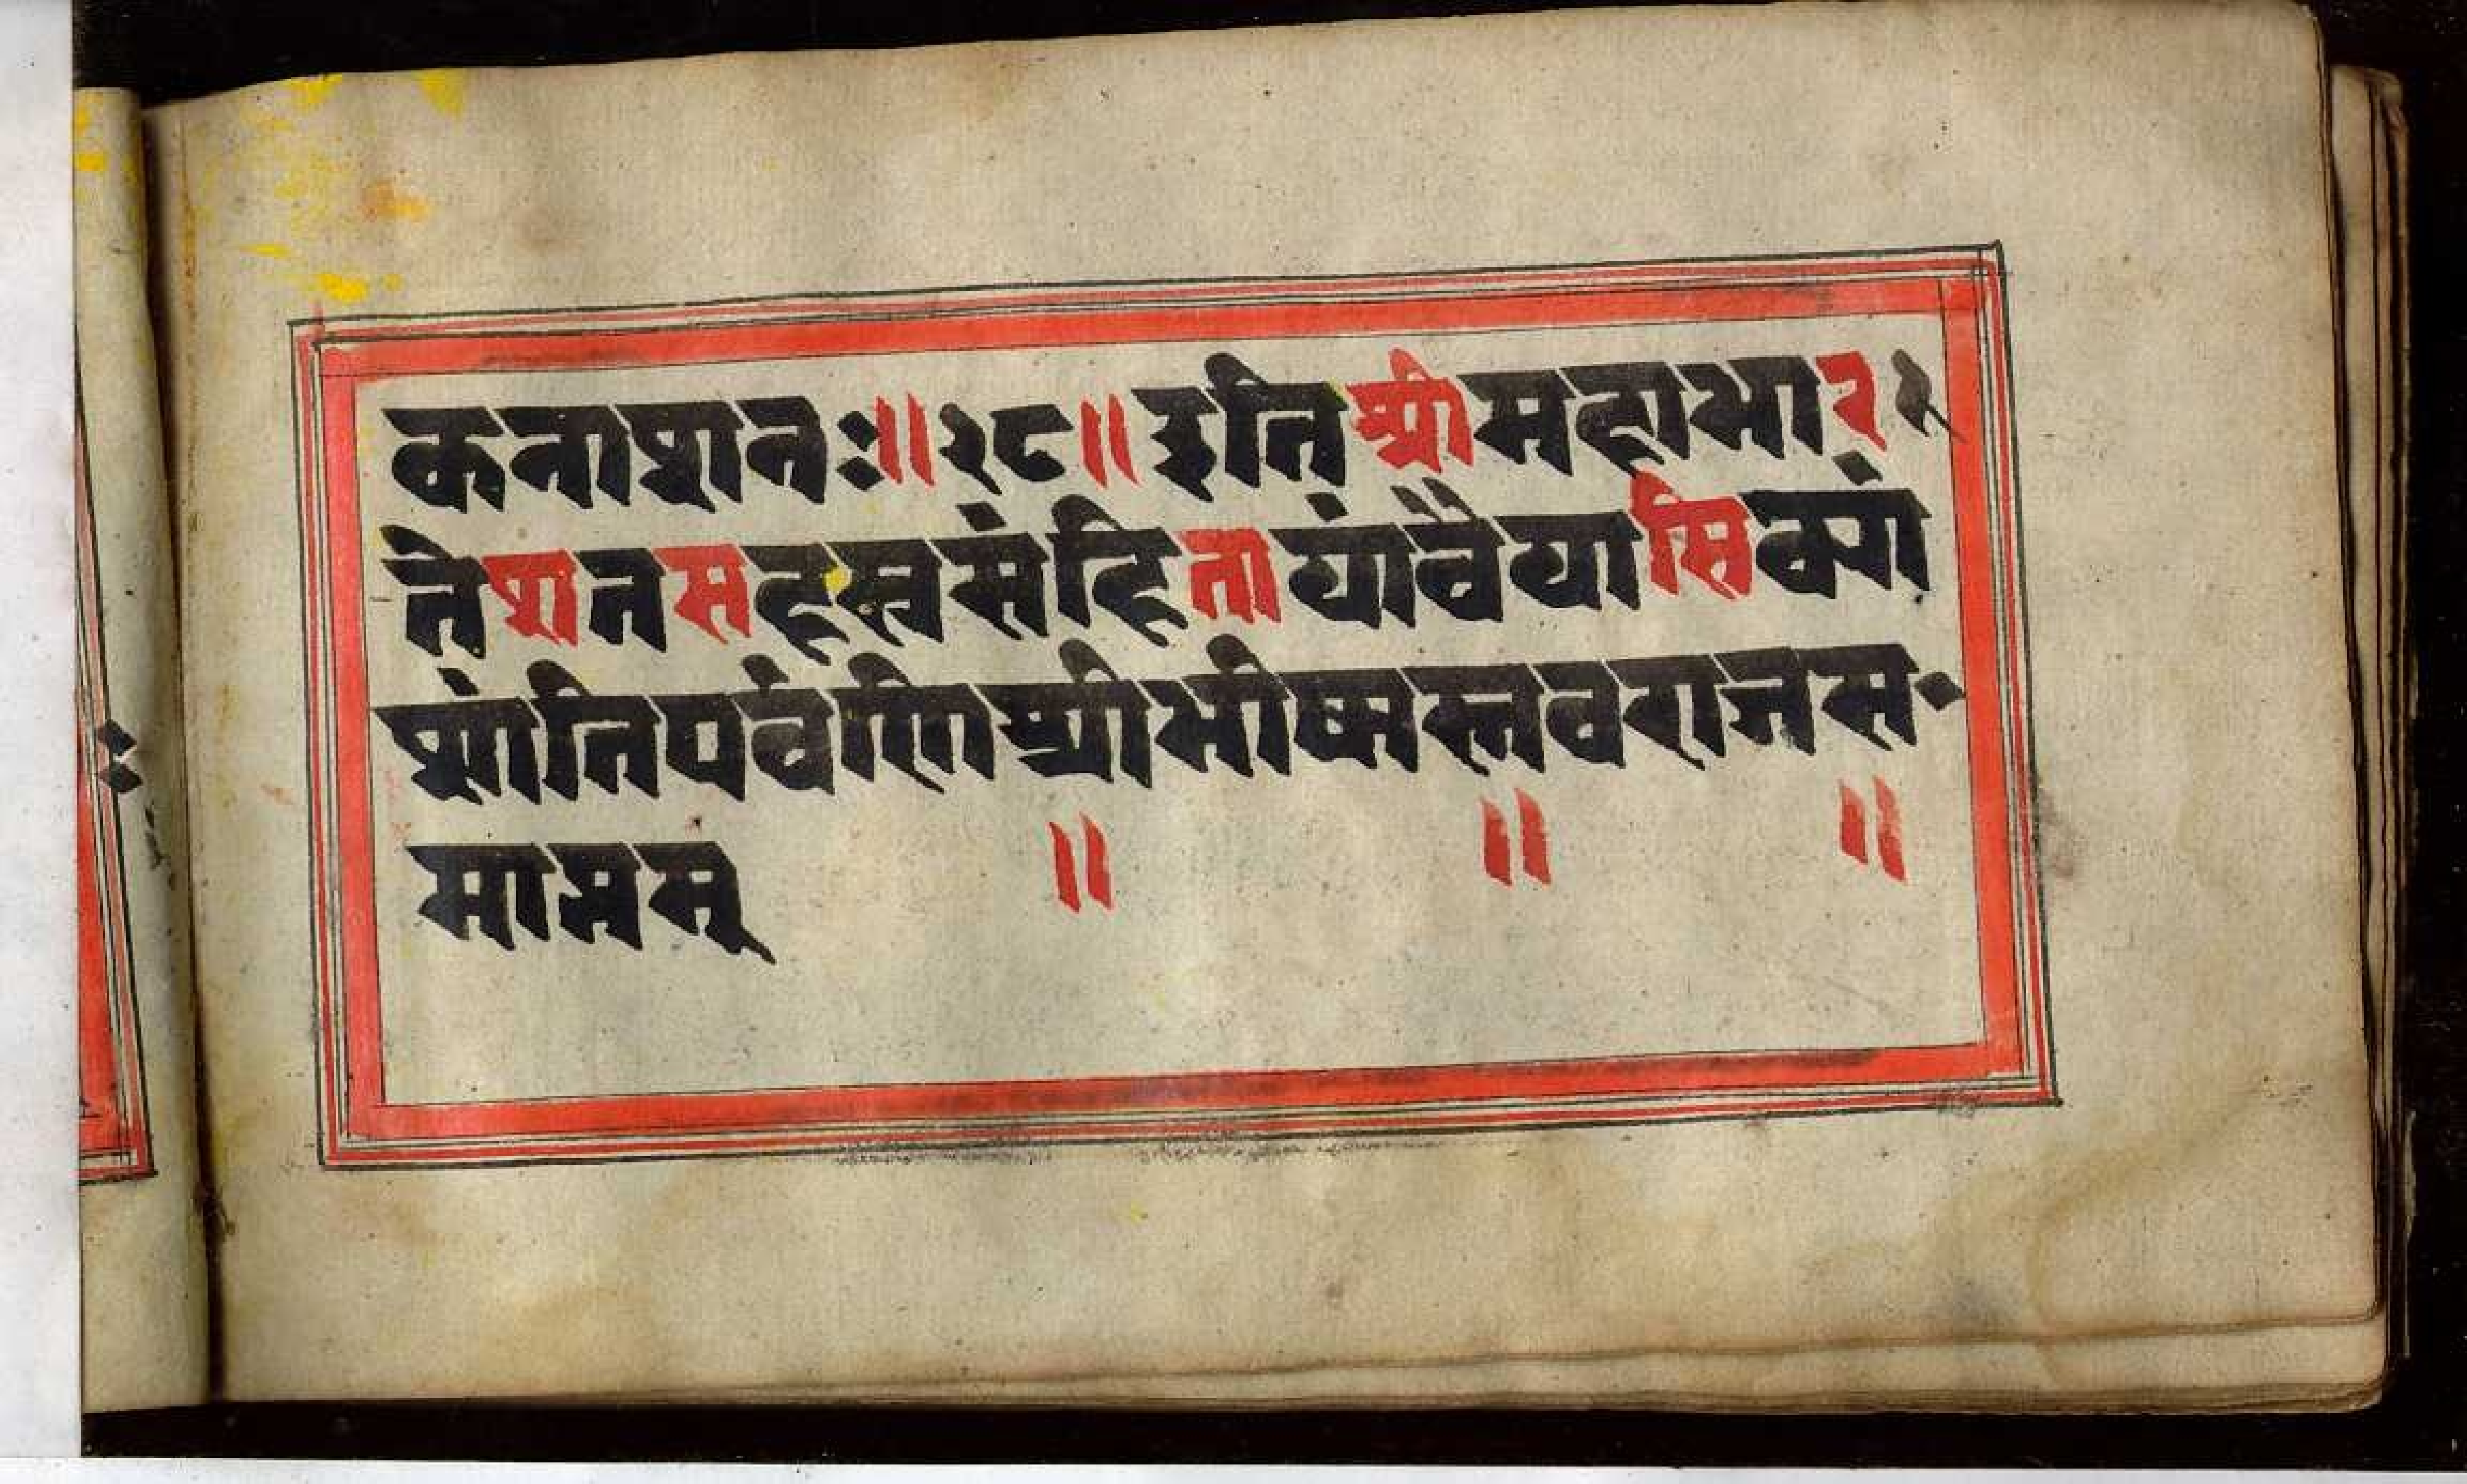 कनाशनः॥२८॥इतिश्रीमहाभार
तेशतसहस्रसंहितायांवैयासिक्यां
शांतिपर्वणिश्रीभीष्मस्तवराजस·
माप्तम् ॥ ॥ ॥